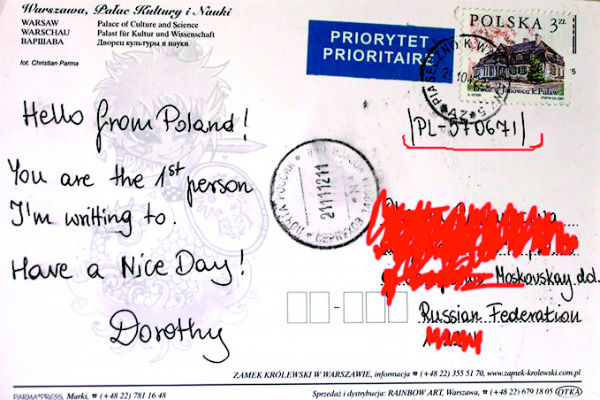 Warszawa, Pałac Kultury i Nauki
WARSAW Palace of Culture and Science
WARSCHAU Palast für Kultur und Wissenschaft
ВАРШАВА Дворец культуры и наука
fot. Christian Parma
PRIORYTET
PRIORITAIRE
POLSKA 3 ZŁ
PIASECZNO K. W
Dwór z Janowca k. Puław
PL-570671
Hello from Poland!
You are the 1st person
I'm writting to.
Have a Nice Day!
Dorothy
ПОЧТА РОССИИ
21111211
Moskovskay obl.
Russian Federation
ZAMEK KRÓLEWSKI W WARSZAWIE, informacja ☎ (+48 22) 355 51 70, www.zamek-krolewski.com.pl
PARMA®PRESS, Marki, ☎ (+48 22) 781 16 48
Sprzedaż i dystrybucja: RAINBOW ART, Warszawa, ☎ (+48 22) 679 18 05 OTKA